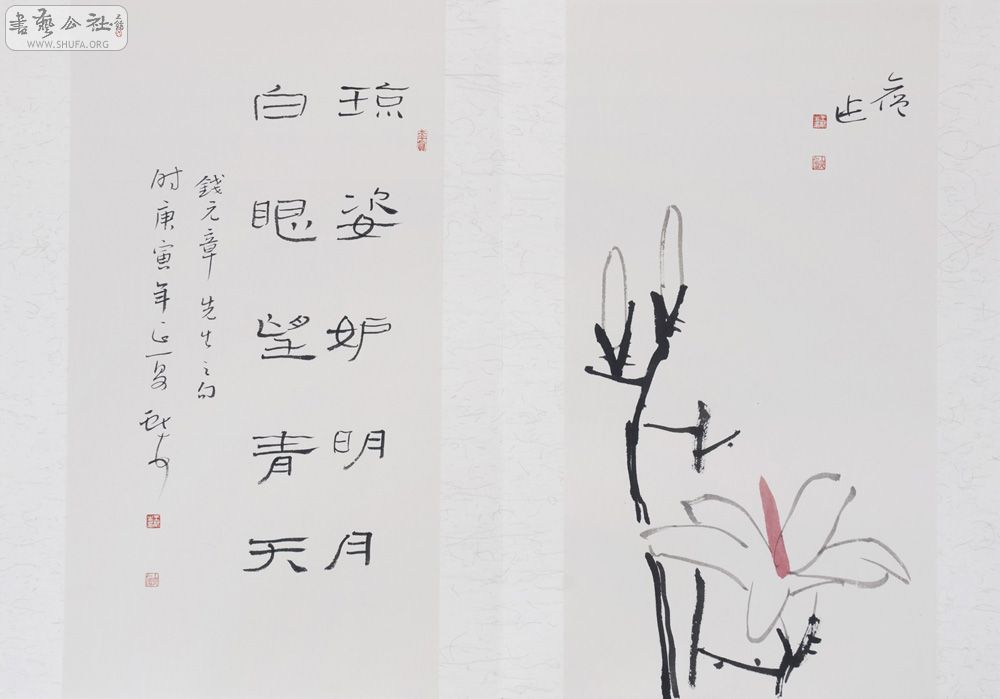 書藝公社
WWW.SHUFA.ORG
琼姿妒明月
白眼望青天
錢元章先生之句
时庚寅年正夏